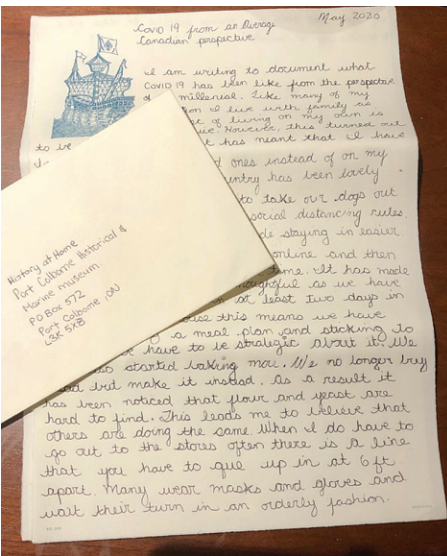 May 2020
Covid 19 from an Average
Canadian perspective
I am writing to document what
Covid 19 has been like from the perspective
of millenial. Like many of my
I live with family as
of living on my own is
However, this turned out
to be it has meant that I have
ones instead of on my
has been lovely
to take our dogs out
social distancing rules.
staying in easier
online and then
time. It has made
as we have
at least two days in
this means we have
a meal plan and sticking to
have to be strategic about it. We
started baking more. We no longer buy
but make it instead. As a result it
has been noticed that flour and yeast are
hard to find. This leads me to believe that
others are doing the same. When I do have to
go out to the stores often there is a line
that you have to que up in at 6 ft
apart. Many wear masks and gloves and
wait their turn in an orderly fashion.
History at Home
Port Colborne Historical &
Marine museum
PO Box 572
Port Colborne, ON
L3K 5X8